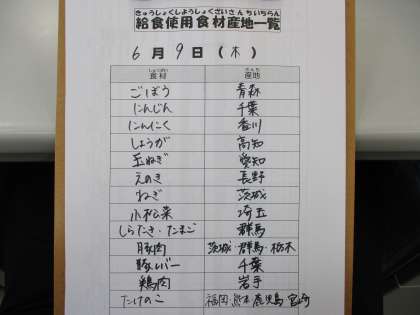 きゅうしょくしようしょくざいさんちいちらん
給食使用食材産地一覧
6月9日(木)
しょくざい さんち
食材 産地
ごぼう 青森
にんじん 千葉
にんにく 香川
しょうが 高知
玉ねぎ 愛知
えのき 長野
ねぎ 茨城
小松菜 埼玉
しらたき・たまご 群馬
豚肉 茨城・群馬・栃木
豚レバー 千葉
鶏肉 岩手
たけのこ 福岡 熊本 鹿児島 宮崎